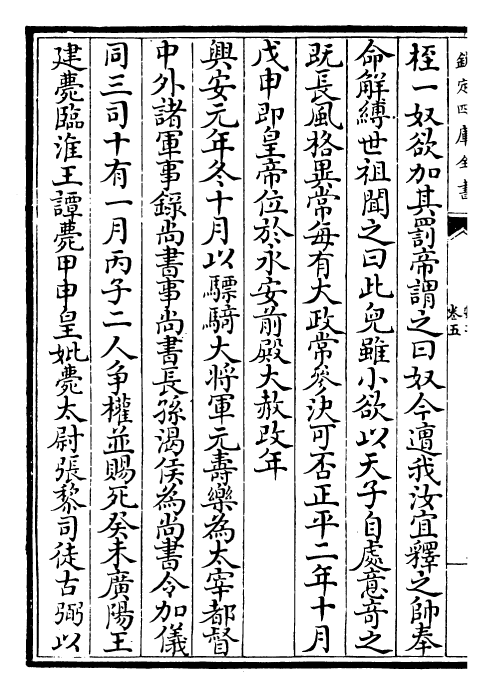 欽定四庫全書
卷五
桎一奴欲加其罰帝謂之曰奴今遭我汝宜釋之帥奉
命解縛世祖聞之曰此兒雖小欲以天子自處意奇之
既長風格異常每有大政常參決可否正平二年十月
戊申即皇帝位於永安前殿大赦改年
興安元年冬十月以驃騎大將軍元壽樂為太宰都督
中外諸軍事錄尚書事尚書長孫渴侯為尚書令加儀
同三司十有一月丙子二人爭權並賜死癸未廣陽王
建薨臨淮王譚薨甲申皇妣薨太尉張黎司徒古弼以